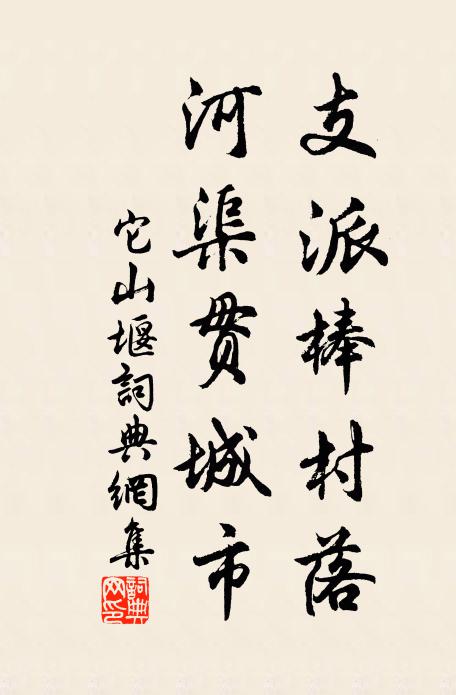 支派棒村落
河渠贯城市
它山堰詞典網集
詞典网印